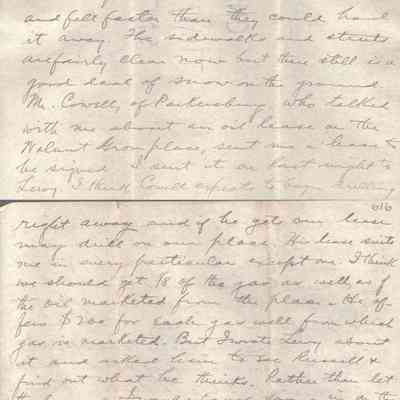 and fell faster than they could haul
it away. The sidewalks and streets
are fairly clear now but there still is a
good deal of snow on the ground.
Mr. Cowell, of Parkersburg, who talked
with me about an oil lease on the
Walnut Grove place, sent me a lease to
be signed. I sent it on last night to
Levy. I think Cowell expects to begin drilling
616
right away and if he gets our lease
may drill on our place. His lease suits
me in every particular except one. I think
we should get 1/8 of the gas as well as of
the oil marketed from the place. He of-
fers $200 for each gas well from which
gas is marketed. But I wrote Levy about
it and asked him to see Russell &
find out what he thinks. Rather than let